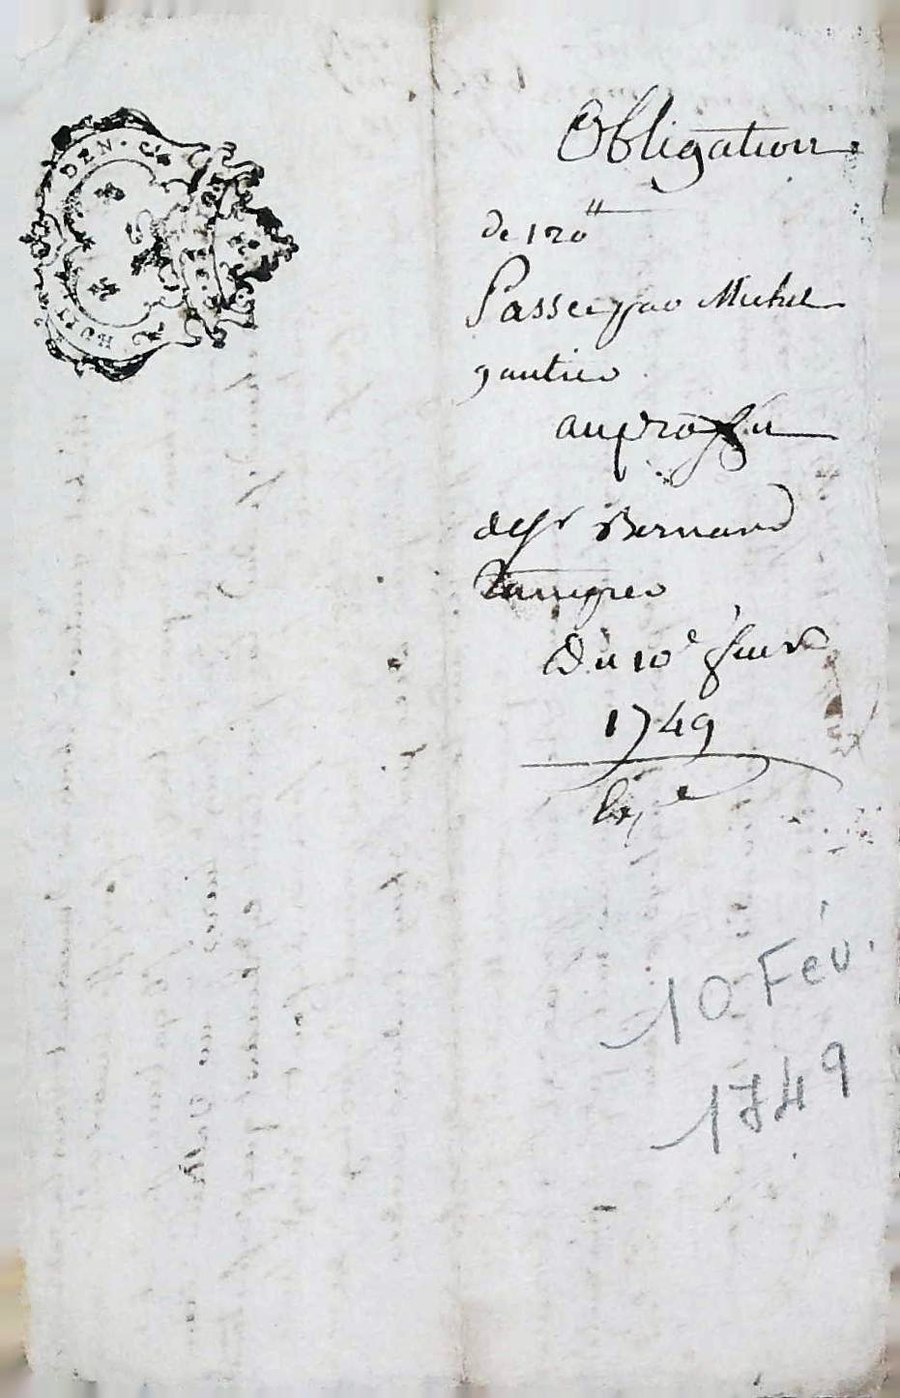 HUIT DEN.
Obligation
de 120ᵗᵗ
Passee par Michel
gautier
au proffit
de Sr Bernard
Du 10e feur
1749
10 Fév.
1749